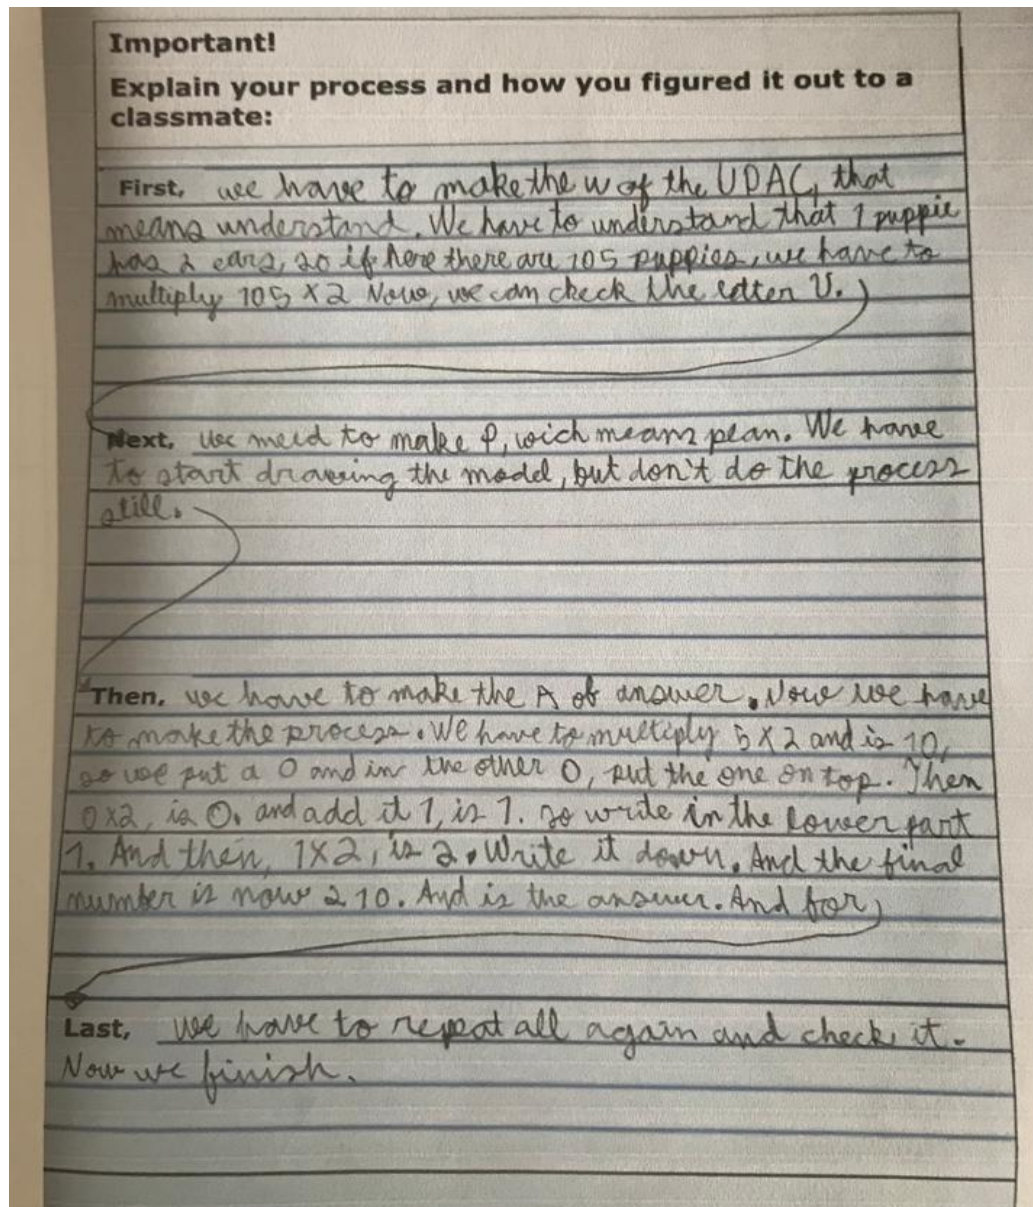 Important!
Explain your process and how you figured it out to a
classmate:
First, we have to make the u of the UPAC, that
means understand. We have to understand that 1 puppie
has 2 ears, so if here there are 105 puppies, we have to
multiply 105 x 2 Now, we can check the letter U.
Next, we need to make P, wich means plan. We have
to start drawing the model, but don't do the process
still.
Then, we have to make the A of answer. Now we have
to make the process. We have to multiply 5 x 2 and is 10,
so we put a 0 and in the other 0, put the one on top. Then
0x2, is 0. and add it 1, is 1. so write in the lower part
1. And then, 1x2, is 2. Write it down. And the final
number is now 210. And is the answer. And for
Last, we have to repeat all again and check it.
Now we finish.